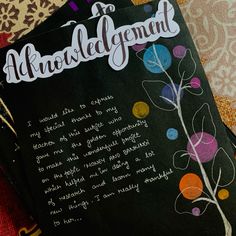 Acknowledgement
I would like to express
my special thanks to my
teacher of this subject who
gave me the golden opportunity
to make this wonderful project
on the topic
which helped me in doing a lot
of research and learn many
new things. I am really thankful
to her...